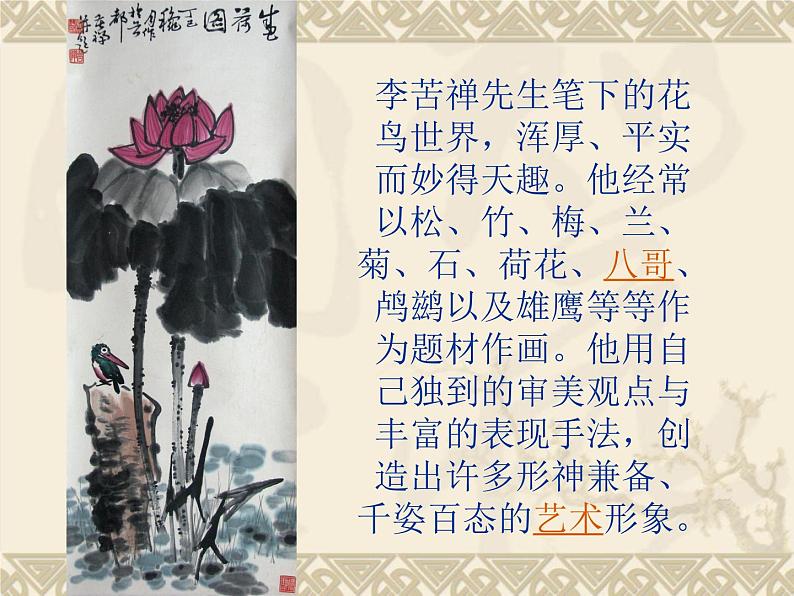 盛荷圖
李苦禅先生笔下的花
鸟世界，浑厚、平实
而妙得天趣。他经常
以松、竹、梅、兰、
菊、石、荷花、八哥、
鸬鹚以及雄鹰等等作
为题材作画。他用自
己独到的审美观点与
丰富的表现手法，创
造出许多形神兼备、
千姿百态的艺术形象。